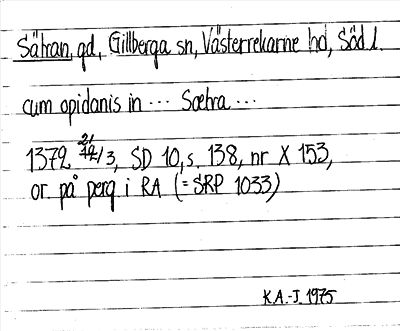 Sätran, gd, Gillberga sn, Västerrekarne hd, Söd l.
cum opidanis in ... Sæhra ...
1372 21/3, SD 10, s. 138, nr X 153,
or. på perg i RA (= SRP 1033)
K.A.-J. 1975